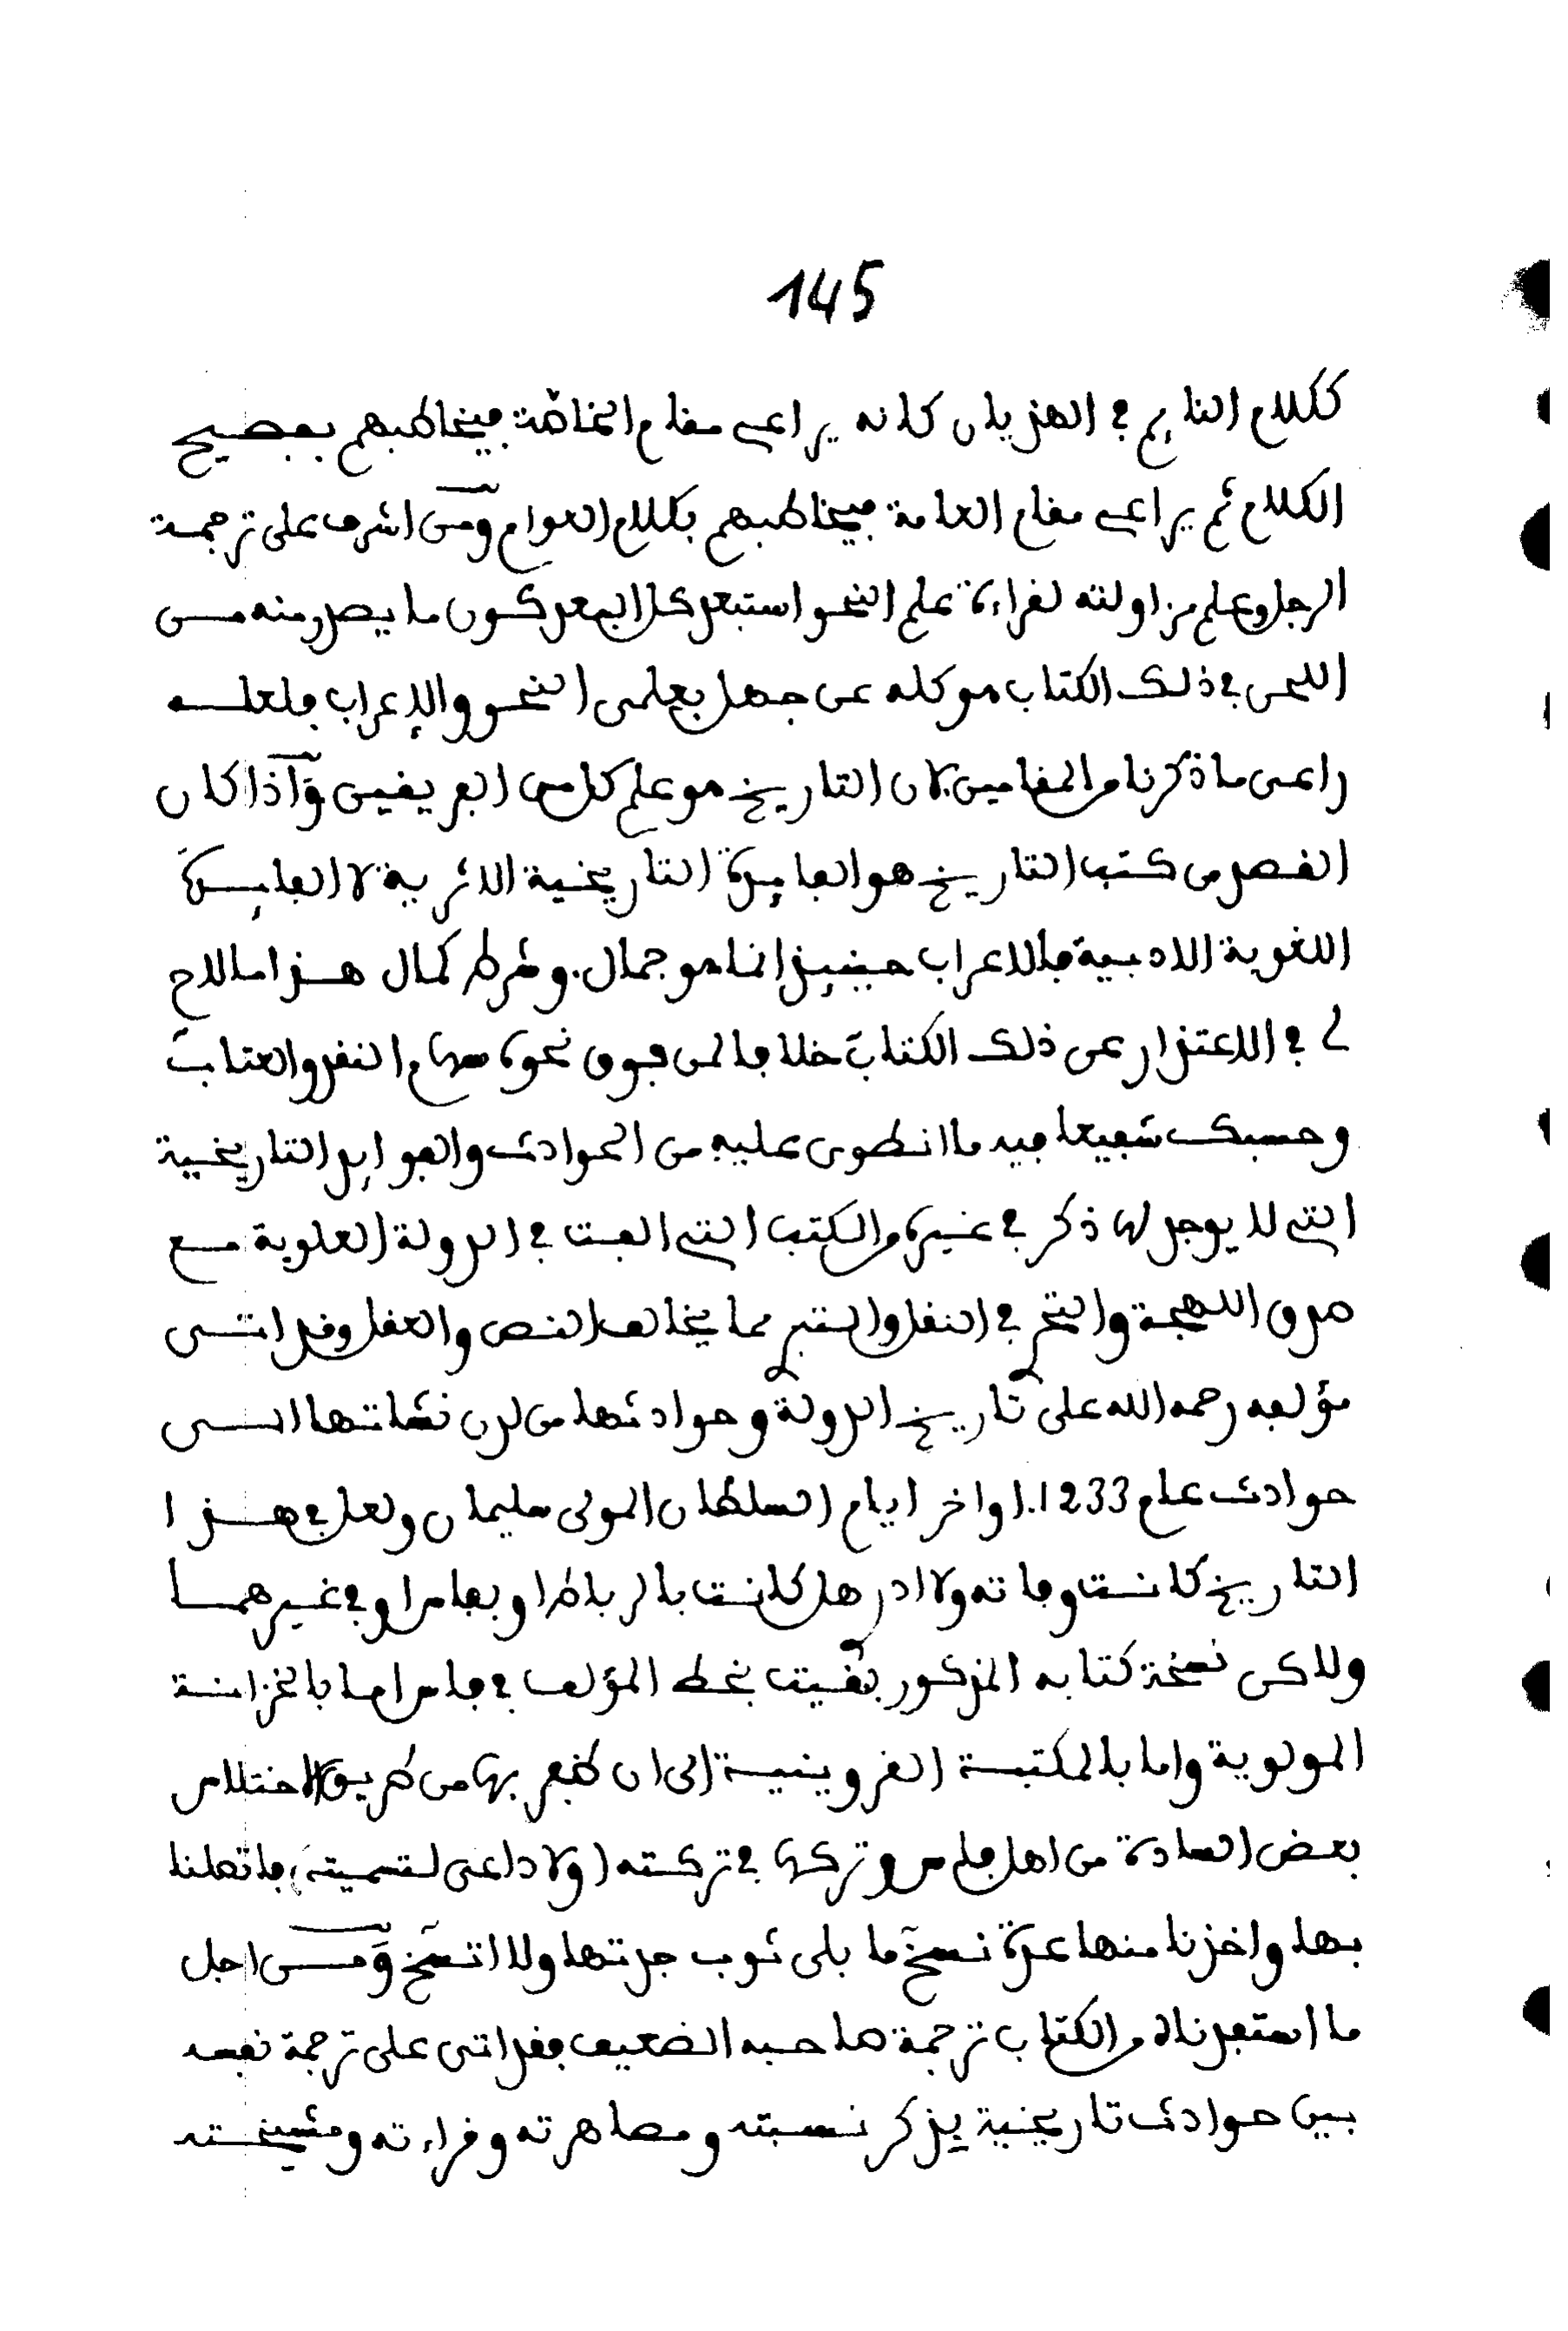 145
ككلام النايم في الهذيان كانه يراعي مقام الخاصّة فيخاطبهم بفصيح
الكلام ثم يراعي مقام العامة فيخاطبهم بكلام العوام ومن اشرف على ترجمة
الرجل وعلم مزاولته لقراءة علم النحو استبعد كل البعد كون ما يصدر منه من
اللحن في ذلك الكتاب هو كله عن جهل بعلمي النحو والإعراب فلعله
راعى ما ذكرنا من المقامين لان التاريخ هو علم كل من الفريقين وٓاذا كان
القصد من كتب التاريخ هو الفايدة التاريخية الاثرية لا الفايدة
اللغوية الادبية فالاعراب حينيذ انما هو جمال. وشرط كمال هذا ما لاح
لي في الاعتذار عن ذلك الكتاب خلافا لمن فوق نحوه سهام النقد والعتاب
وحسبك شفيعا فيه ما انطوى عليه من الحوادث والفوايد التاريخية
التي لا يوجد لها ذكر في غيره من الكتب التي الفت في الدولة العلوية مع
صدق اللهجة والتحري في النقل والتبري مما يخالف النص والعقل وقد اتى
مؤلفه رحمه الله على تاريخ الدولة وحوادثها من لدن نشاتها الى
حوادث عام 1233. اواخر ايام السلطان المولى سليمان ولعل في هذا
التاريخ كانت وفاته ولا ادري هل كانت بالرباط او بفاس او في غيرهما
ولاكن نسخة كتابه المذكور بقيت بخط المؤلف في فاس اما بالخزانة
المولوية واما بالمكتبة القروينية الى ان ظفر بها من طريق الاختلاس
بعض السادة من اهل فاس وتركها في تركته (ولا داعى لتسميته) فاتصلنا
بها واخذنا منها عدة نسخ ما بلى ثوب جدتها ولا اتسخ وٓمن اجل
ما استفدناه من الكتاب ترجمة صاحبه الضعيف فقد اتى على ترجمة نفسه
بين حوادث تاريخية يذكر نسبته ومصاهرته وقراءته ومشيخته